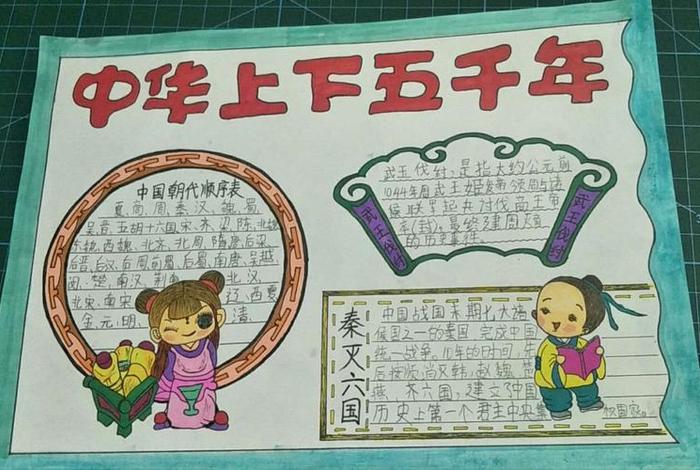 中华上下五千年
中国朝代顺序表
夏、商、周、秦、汉、魏、蜀
吴、晋、五胡十六国、宋、齐、梁、陈、北魏
东魏、西魏、北齐、北周、隋、唐、后梁
后晋、后汉、后周、前蜀、后蜀、南唐、吴越
闽、楚、南汉、荆南 北汉
北宋、南宋 辽、西夏
金、元、明、 清
武王伐纣，是指大约公元前
1044年周武王姬发带领周与诸
侯联军起兵讨伐商王帝
辛(纣)，最终建周灭商
的历史事件
武王伐纣
武王伐纣
秦灭六国
中国战国末期七大诸
侯国之一的秦国 完成中国
统一战争。10年的时间，先
后按顺 韩、赵、魏、楚
燕、齐六国，建立了中国
历史上第一个君主中央集 权国家。